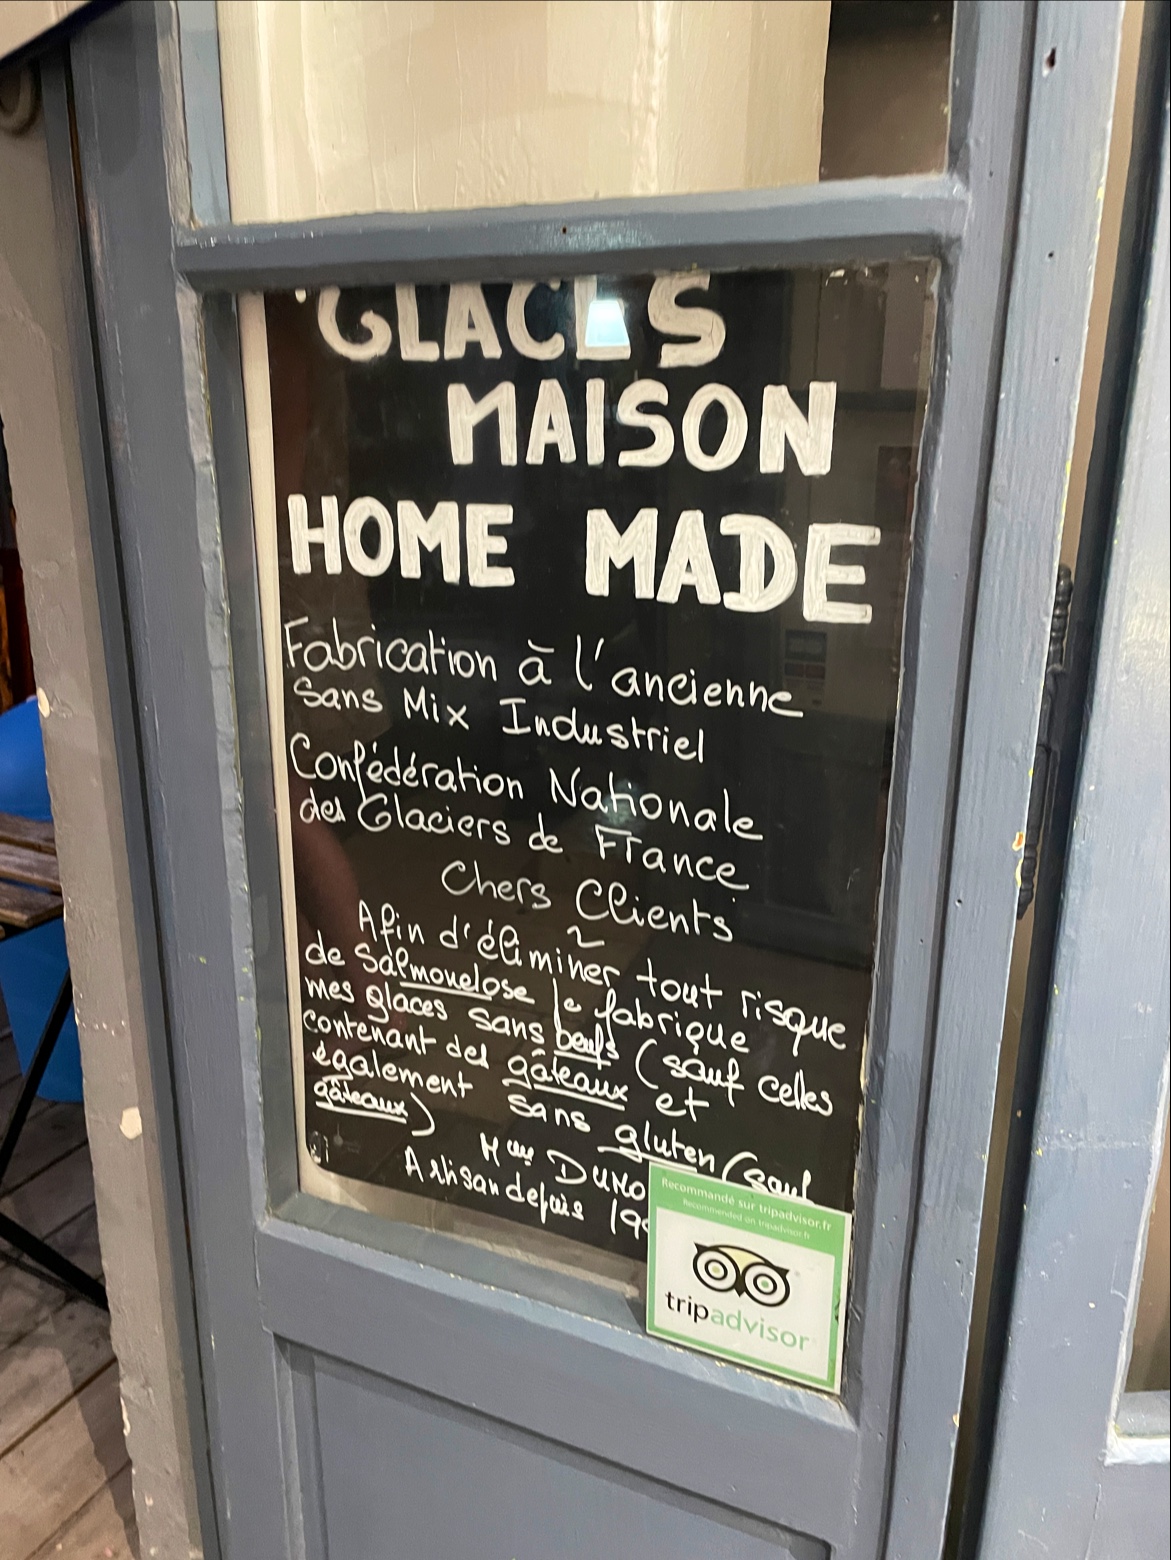 GLACES
MAISON
HOME MADE
Fabrication à l'ancienne
Sans Mix Industriel
Confédération Nationale
des Glaciers de France
Chers Clients
Afin d'éliminer tout risque
de Salmonelose je fabrique
mes glaces sans oeufs (sauf celles
contenant des gâteaux et
également sans gluten (sauf
gâteaux)
Artisan depuis
Recommandé sur tripadvisor.fr
Recommended on tripadvisor.fr
tripadvisor